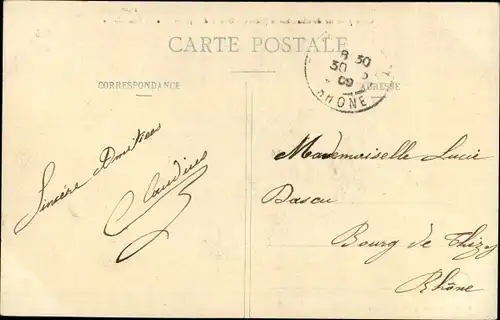 CARTE POSTALE
CORRESPONDANCE
ADRESSE
8 30
30
09
RHONE
Sincère Amitiées
Claudius
Mademoiselle Lucie
Bourg de Thizy
Rhône